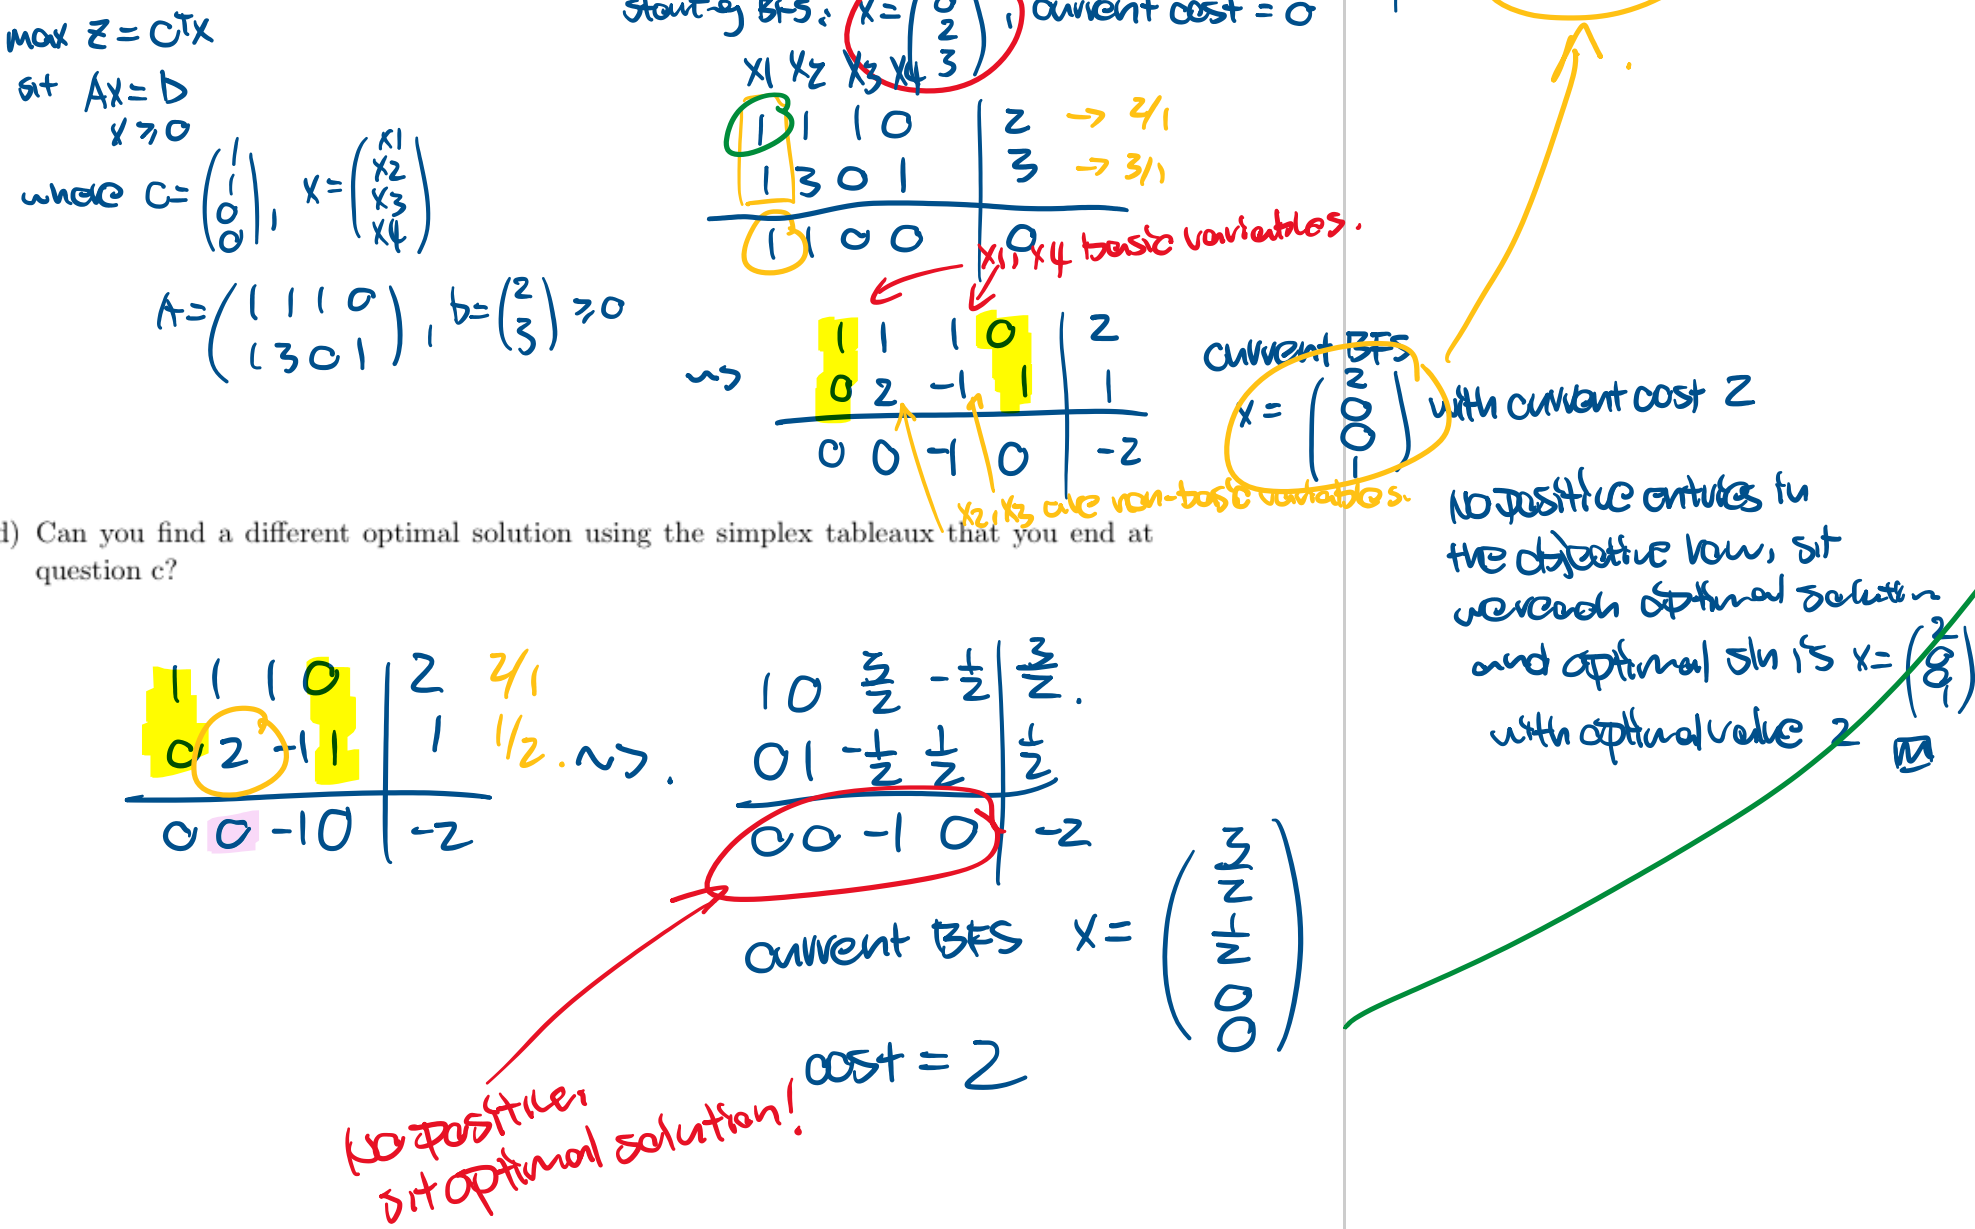 max Z = CᵀX
s.t AX = b
X ⩾ 0
where C = (1 1 0 0), X = (x1 x2 x3 x4)
A = (1 1 1 0
1 3 0 1), b = (2 3) ⩾ 0
starting BFS: X = (0 2 3), current cost = 0
X1 X2 X3 X4
1 1 1 0 | 2 → 2/1
1 3 0 1 | 3 → 3/1
1 1 0 0 | 0
x1, x4 basic variables.
~> 1 1 1 0 | 2
0 2 -1 1 | 1
0 0 -1 0 | -2
x2, x3 are non-basic variables.
current BFS
x = (2 0 0 1) with current cost 2
No positive entries in
the objective row, sit
we reach optimal solution
and optimal sln is x = (2 0 0 1)
with optimal value 2
d) Can you find a different optimal solution using the simplex tableaux that you end at
question c?
1 1 1 0 | 2 2/1
0 2 -1 1 | 1 1/2 . ~> .
0 0 -1 0 | -2
1 0 3/2 -1/2 | 3/2 .
0 1 -1/2 1/2 | 1/2
0 0 -1 0 | -2
current BFS X = (3/2 1/2 0 0)
cost = 2
No positive.
sit optimal solution!